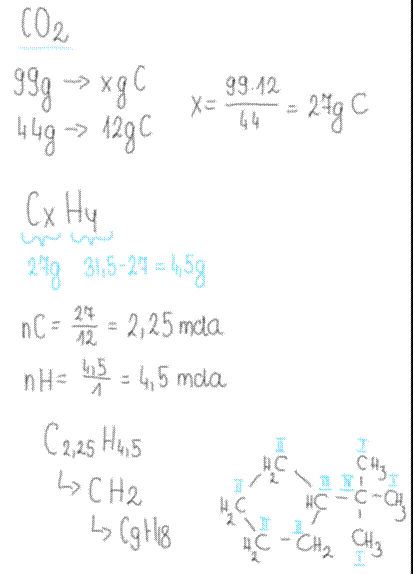 CO₂
99g → xgC
44g → 12gC
x = 99·12 / 44 = 27g C
CxHy
27g 31,5-27=4,5g
nC = 27/12 = 2,25 mola
nH = 4,5/1 = 4,5 mola
C₂,₂₅H₄,₅
↳ CH₂
↳ C₉H₁₈
II I
H₂C CH₃
II III IV I
H₂C HC - C - CH₃
II II
H₂C - CH₂ CH₃
I